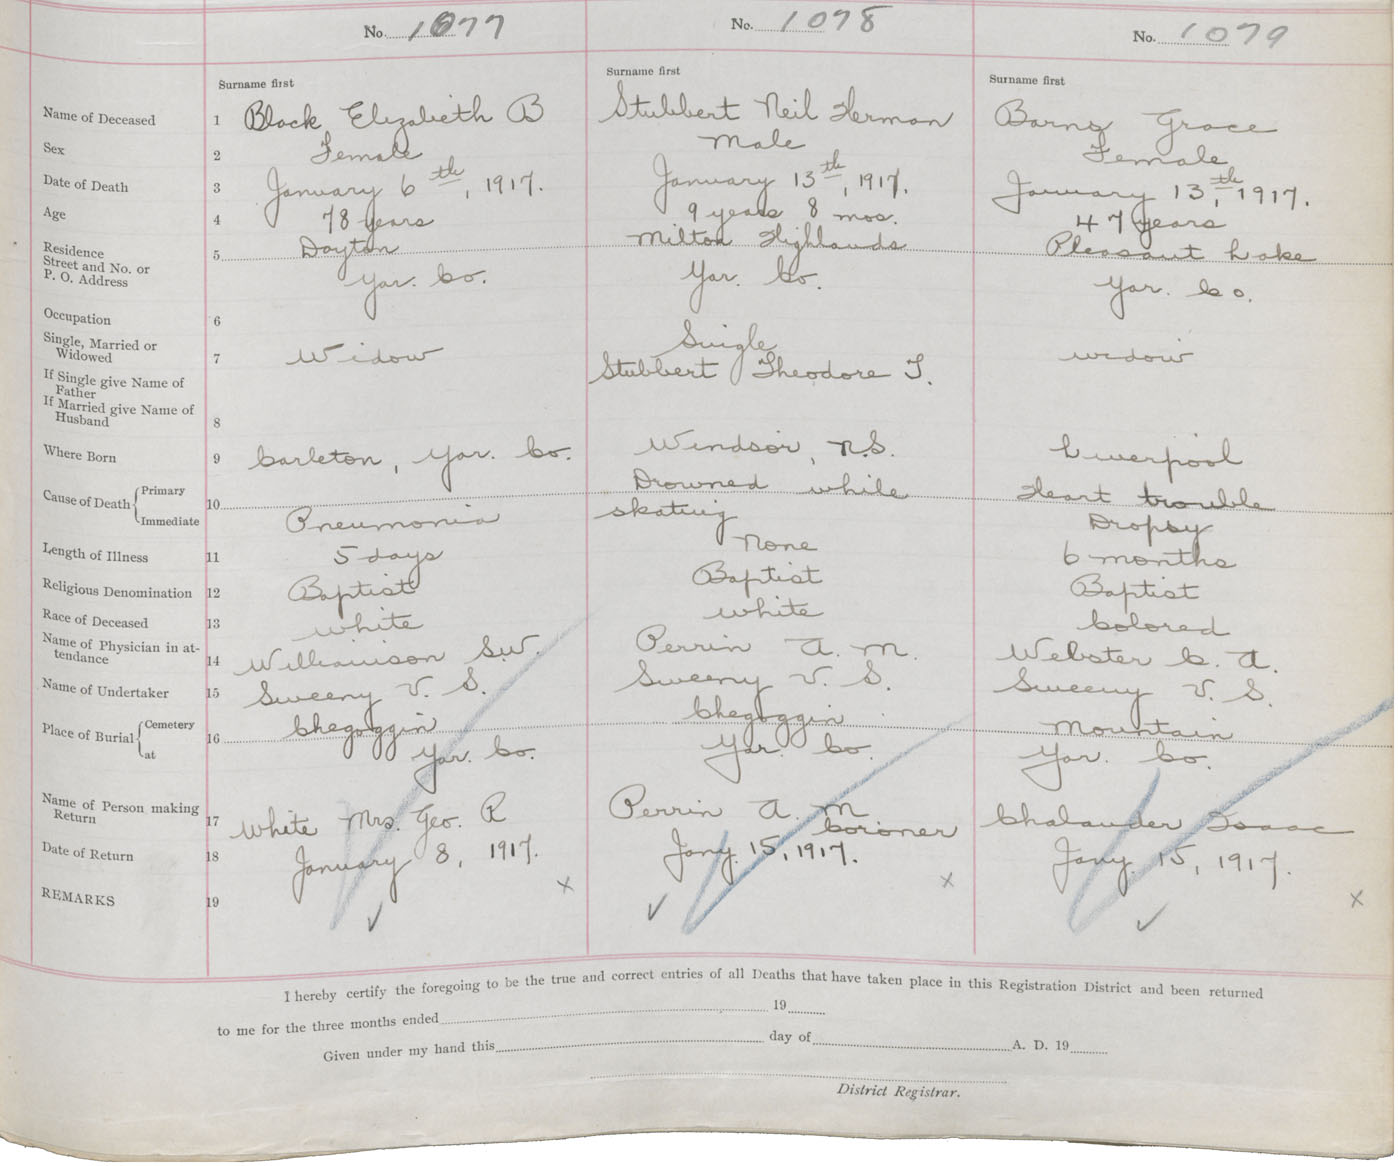 No. 1077
No. 1078
No. 1079
Surname first
Surname first
Surname first
Name of Deceased 1 Black Elizabeth B
Stubbert Neil Herman
Barns Grace
Sex 2 Female
Male
Female
Date of Death 3 January 6th, 1917.
January 13th, 1917.
January 13th, 1917.
Age 4 78 years
9 years 8 mos.
47 years
Residence
Street and No. or
P. O. Address
5 Dayton
Yar. Co.
Milton Highlands
Yar. Co.
Pleasant Lake
Yar. Co.
Occupation 6
Single, Married or
Widowed 7 Widow
Single
widow
If Single give Name of
Father
If Married give Name of
Husband 8
Stubbert Theodore T.
Where Born 9 Carleton, Yar. Co.
Windsor, N.S.
Liverpool
Cause of Death Primary
Immediate
10 Pneumonia
Drowned while
skating
Heart trouble
Dropsy
Length of Illness 11 5 days
None
6 months
Religious Denomination 12 Baptist
Baptist
Baptist
Race of Deceased 13 white
white
Colored
Name of Physician in at-
tendance 14 Williamson S.W.
Perrin A. M.
Webster C. A.
Name of Undertaker 15 Sweeny V. S.
Sweeny V. S.
Sweeny V. S.
Place of Burial Cemetery
at
16 Chegoggin
Yar. Co.
Chegoggin
Yar. Co.
Mountain
Yar. Co.
Name of Person making
Return 17 White Mrs. Geo. R
Perrin A. M
Coroner
Chalander Isaac
Date of Return 18 January 8, 1917.
Jany. 15, 1917.
Jany. 15, 1917.
REMARKS 19
x
x
x
I hereby certify the foregoing to be the true and correct entries of all Deaths that have taken place in this Registration District and been returned
to me for the three months ended 19
Given under my hand this day of A. D. 19
District Registrar.